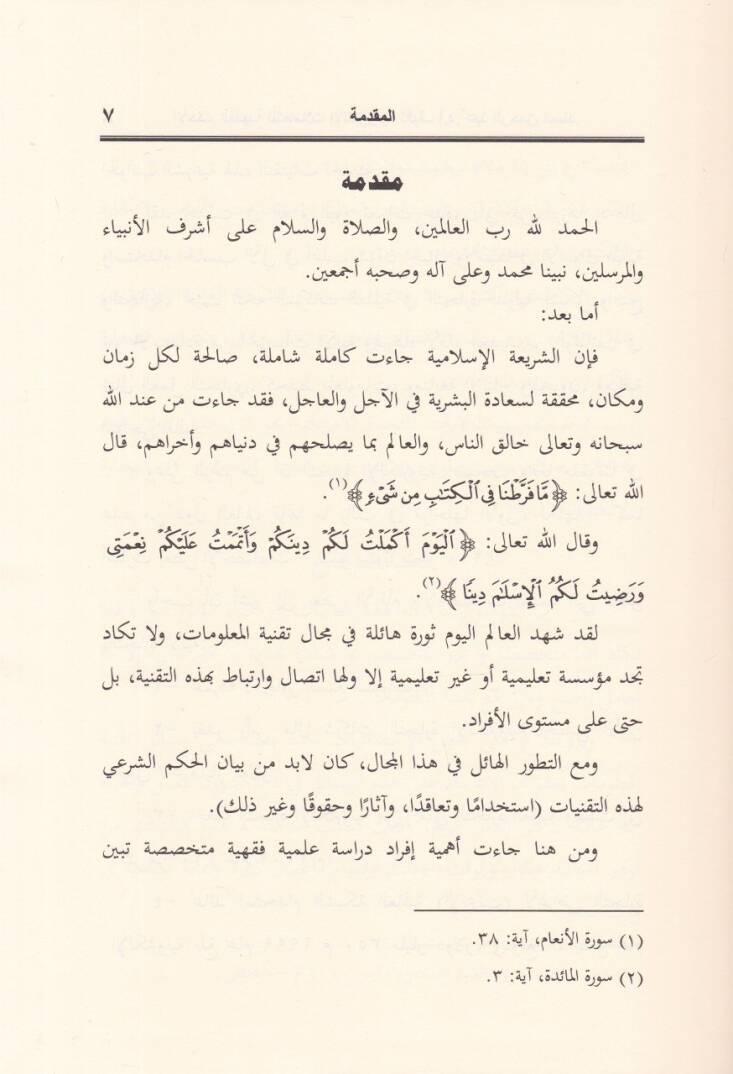 المقدمة ٧
مقدمة
الحمد لله رب العالمين، والصلاة والسلام على أشرف الأنبياء
والمرسلين، نبينا محمد وعلى آله وصحبه أجمعين.
أما بعد:
فإن الشريعة الإسلامية جاءت كاملة شاملة، صالحة لكل زمان
ومكان، محققة لسعادة البشرية في الآجل والعاجل، فقد جاءت من عند الله
سبحانه وتعالى خالق الناس، والعالم بما يصلحهم في دنياهم وأخراهم، قال
الله تعالى: ﴿مَّا فَرَّطْنَا فِي ٱلْكِتَٰبِ مِن شَىْءٍ﴾(١).
وقال الله تعالى: ﴿ٱلْيَوْمَ أَكْمَلْتُ لَكُمْ دِينَكُمْ وَأَتْمَمْتُ عَلَيْكُمْ نِعْمَتِى
وَرَضِيتُ لَكُمُ ٱلْإِسْلَٰمَ دِينًا﴾(٢).
لقد شهد العالم اليوم ثورة هائلة في مجال تقنية المعلومات، ولا تكاد
تجد مؤسسة تعليمية أو غير تعليمية إلا ولها اتصال وارتباط بهذه التقنية، بل
حتى على مستوى الأفراد.
ومع التطور الهائل في هذا المجال، كان لابد من بيان الحكم الشرعي
لهذه التقنيات (استخدامًا وتعاقدًا، وآثارًا وحقوقًا وغير ذلك).
ومن هنا جاءت أهمية إفراد دراسة علمية فقهية متخصصة تبين
(١) سورة الأنعام، آية: ٣٨.
(٢) سورة المائدة، آية: ٣.